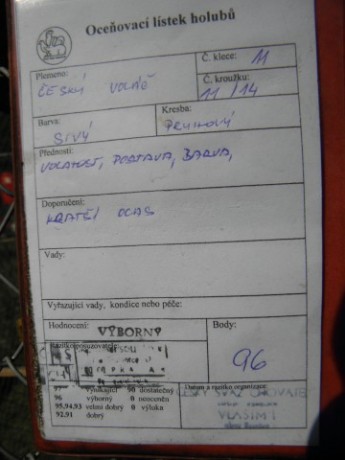 Oceňovací lístek holubů
Plemeno: Č. klece: 11
ČESKÝ Č. kroužku:
11/14
Barva: Kresba:
SIVÝ PRUHOVÝ
Přednosti:
VOLATOST, POSTAVA, BARVA,
Doporučení:
KRATŠÍ OCAS
Vady:
Vyřazující vady, kondice nebo péče:
Hodnocení: VÝBORNÝ Body:
96
97 vynikající 90 dostatečný
96 výborný 0 neoceněn
95,94,93 velmi dobrý 0 výluka
92,91 dobrý
Datum a razítko organizace
ČESKÝ SVAZ CHOVATELŮ
VLAŠIM